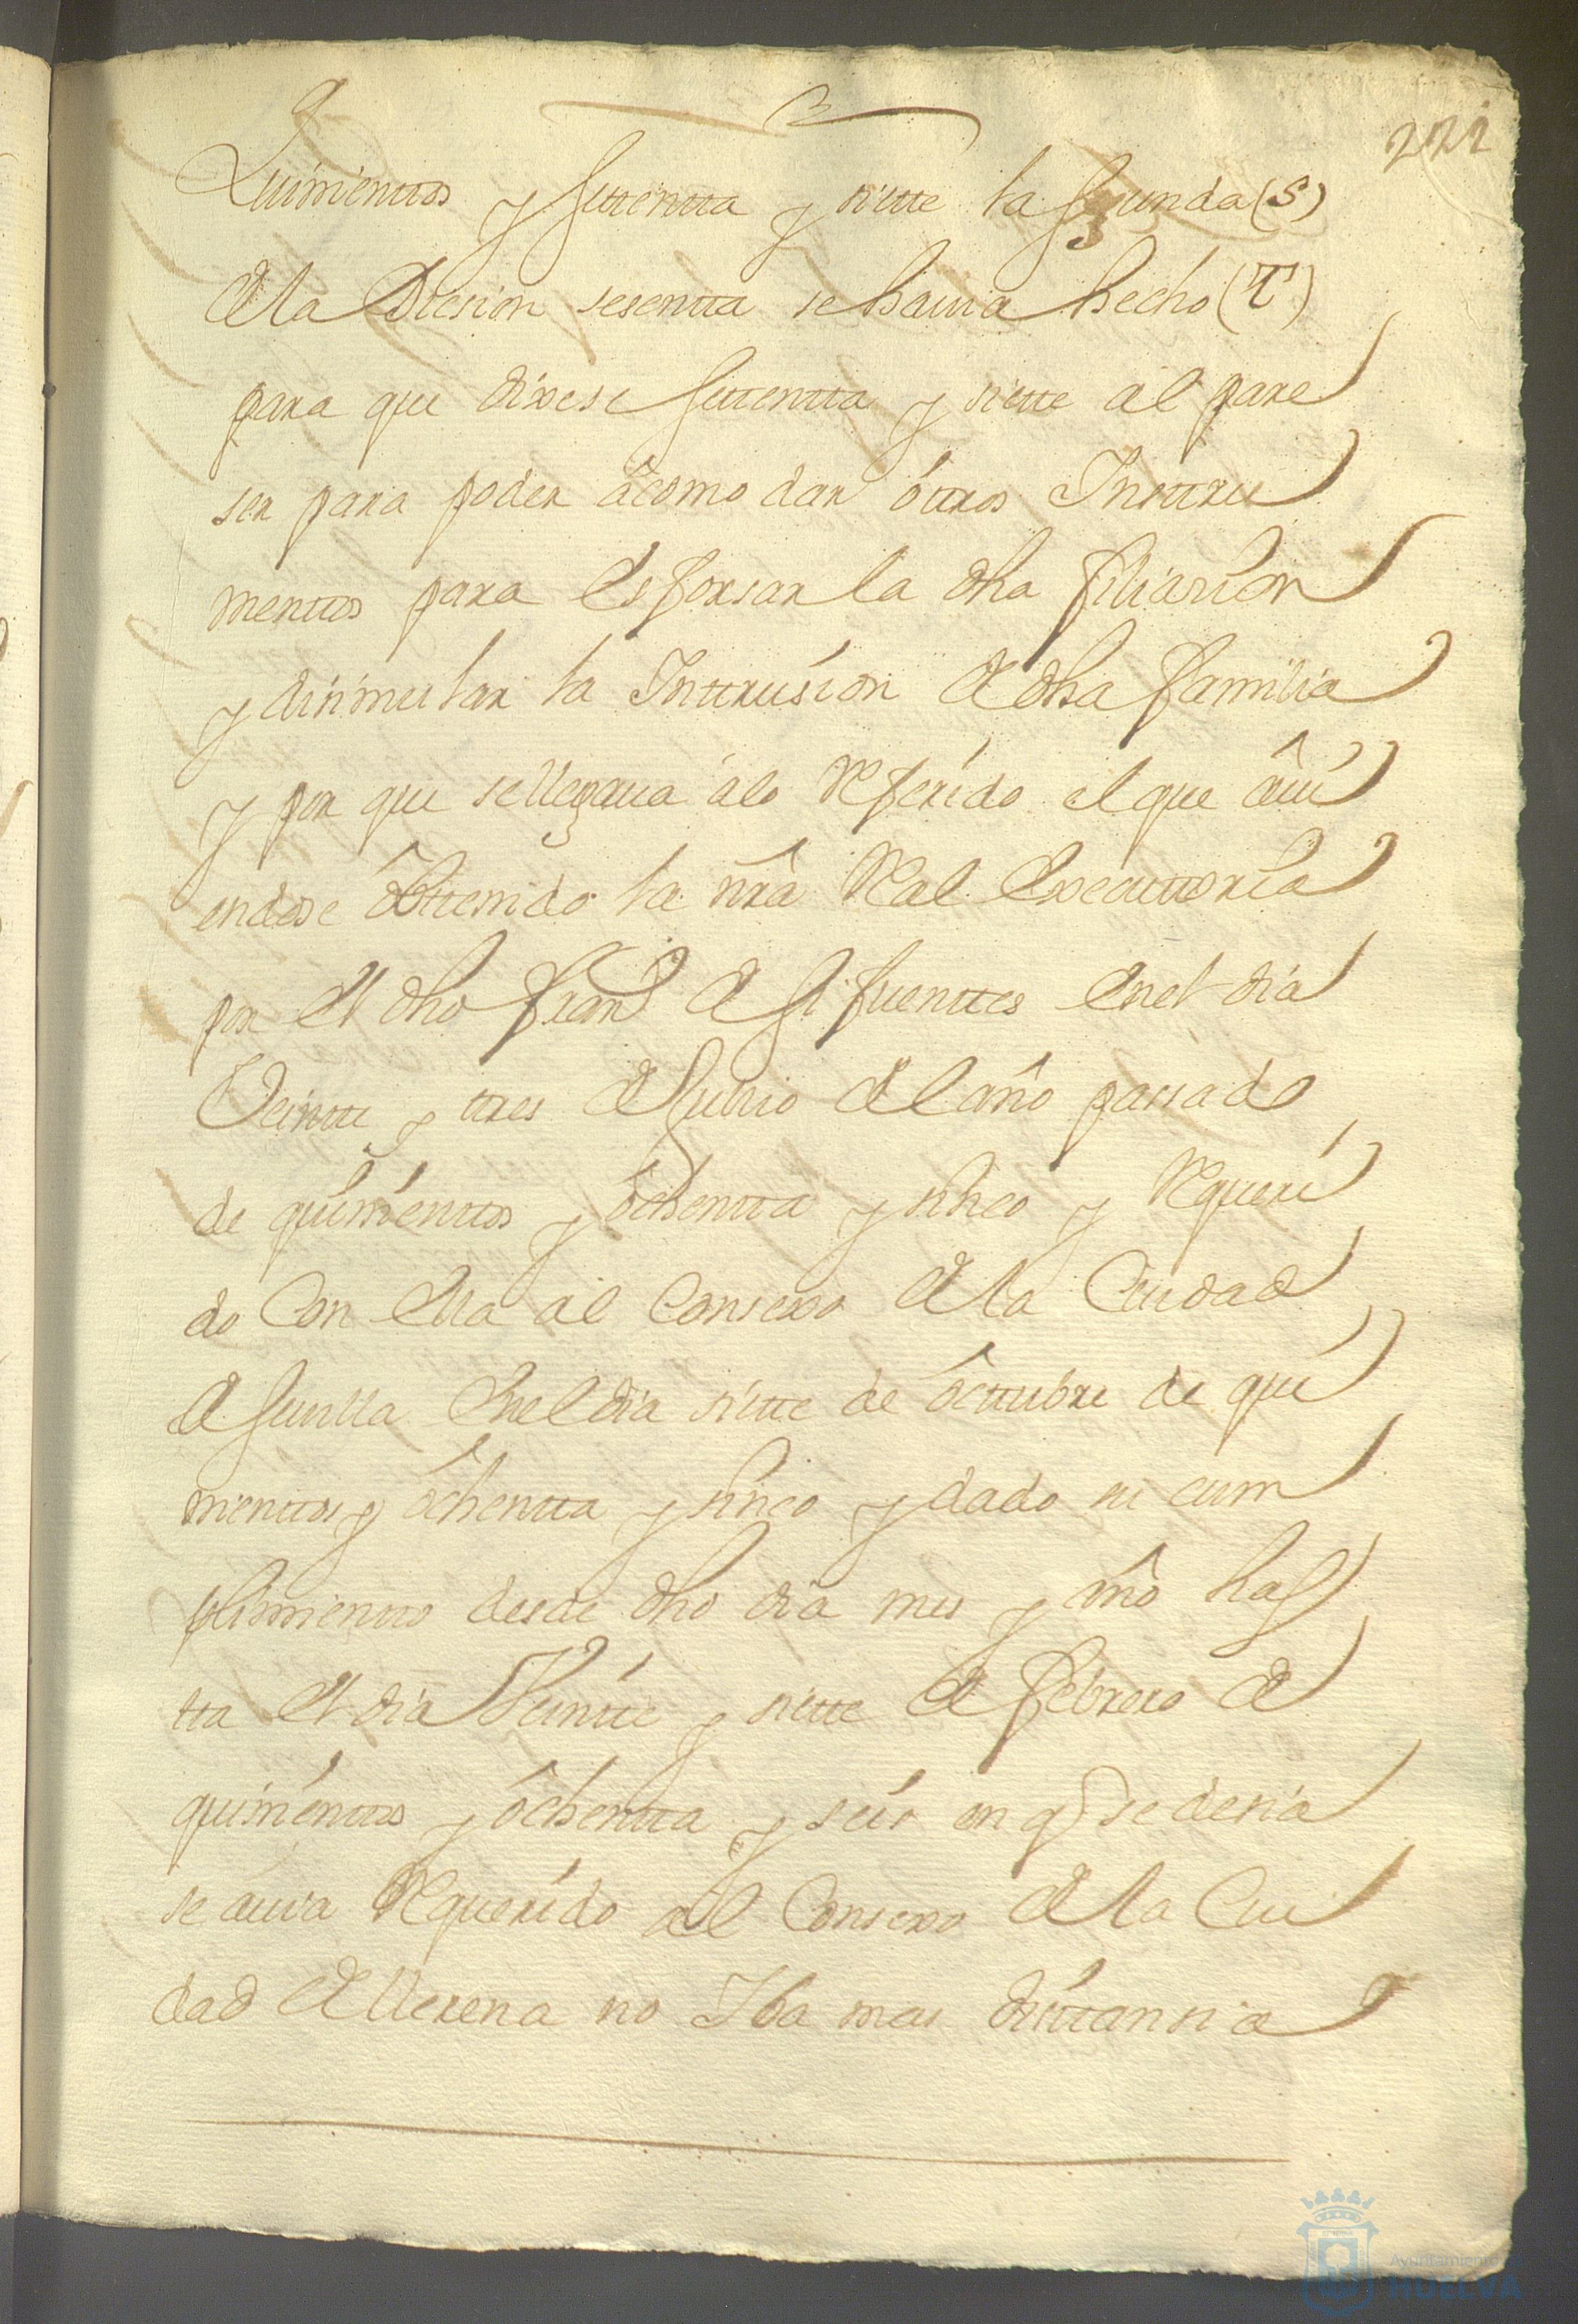 221
Quinienttos y settentta y siette la segunda (S)
de la Diesion sesentta se hauia hecho (T)
para que dixese settentta y siette al pare
ser para poder âcomodar óttros Ynsttru
menttos para esforsar la dha filiasion
y disimular la Inttrusion de dha familia
y por que se llegaua álo Referido el que âui
endose ôbttenido la nrâ Real Executtoria
por el dho Franco de Sifuenttes en el dia
Veintte y ttres de Junio del año passado
de quinienttos y ôchentta y sinco y Requeri
do Con ella al Consexo de la Ciudad
de Seuilla en el dia siette de ôcttubre de qui
nienttos y ôchentta y sinco y dado su cum
plimientto desde dho dia mes y año has
tta el dia Veintte y siette de febrero de
quinienttos y ôchentta y seis en q se desia
se auia Requerido al Consexo de la Ciu
dad de Llerena no Iba mas disttansia
Ayuntamiento
HUELVA